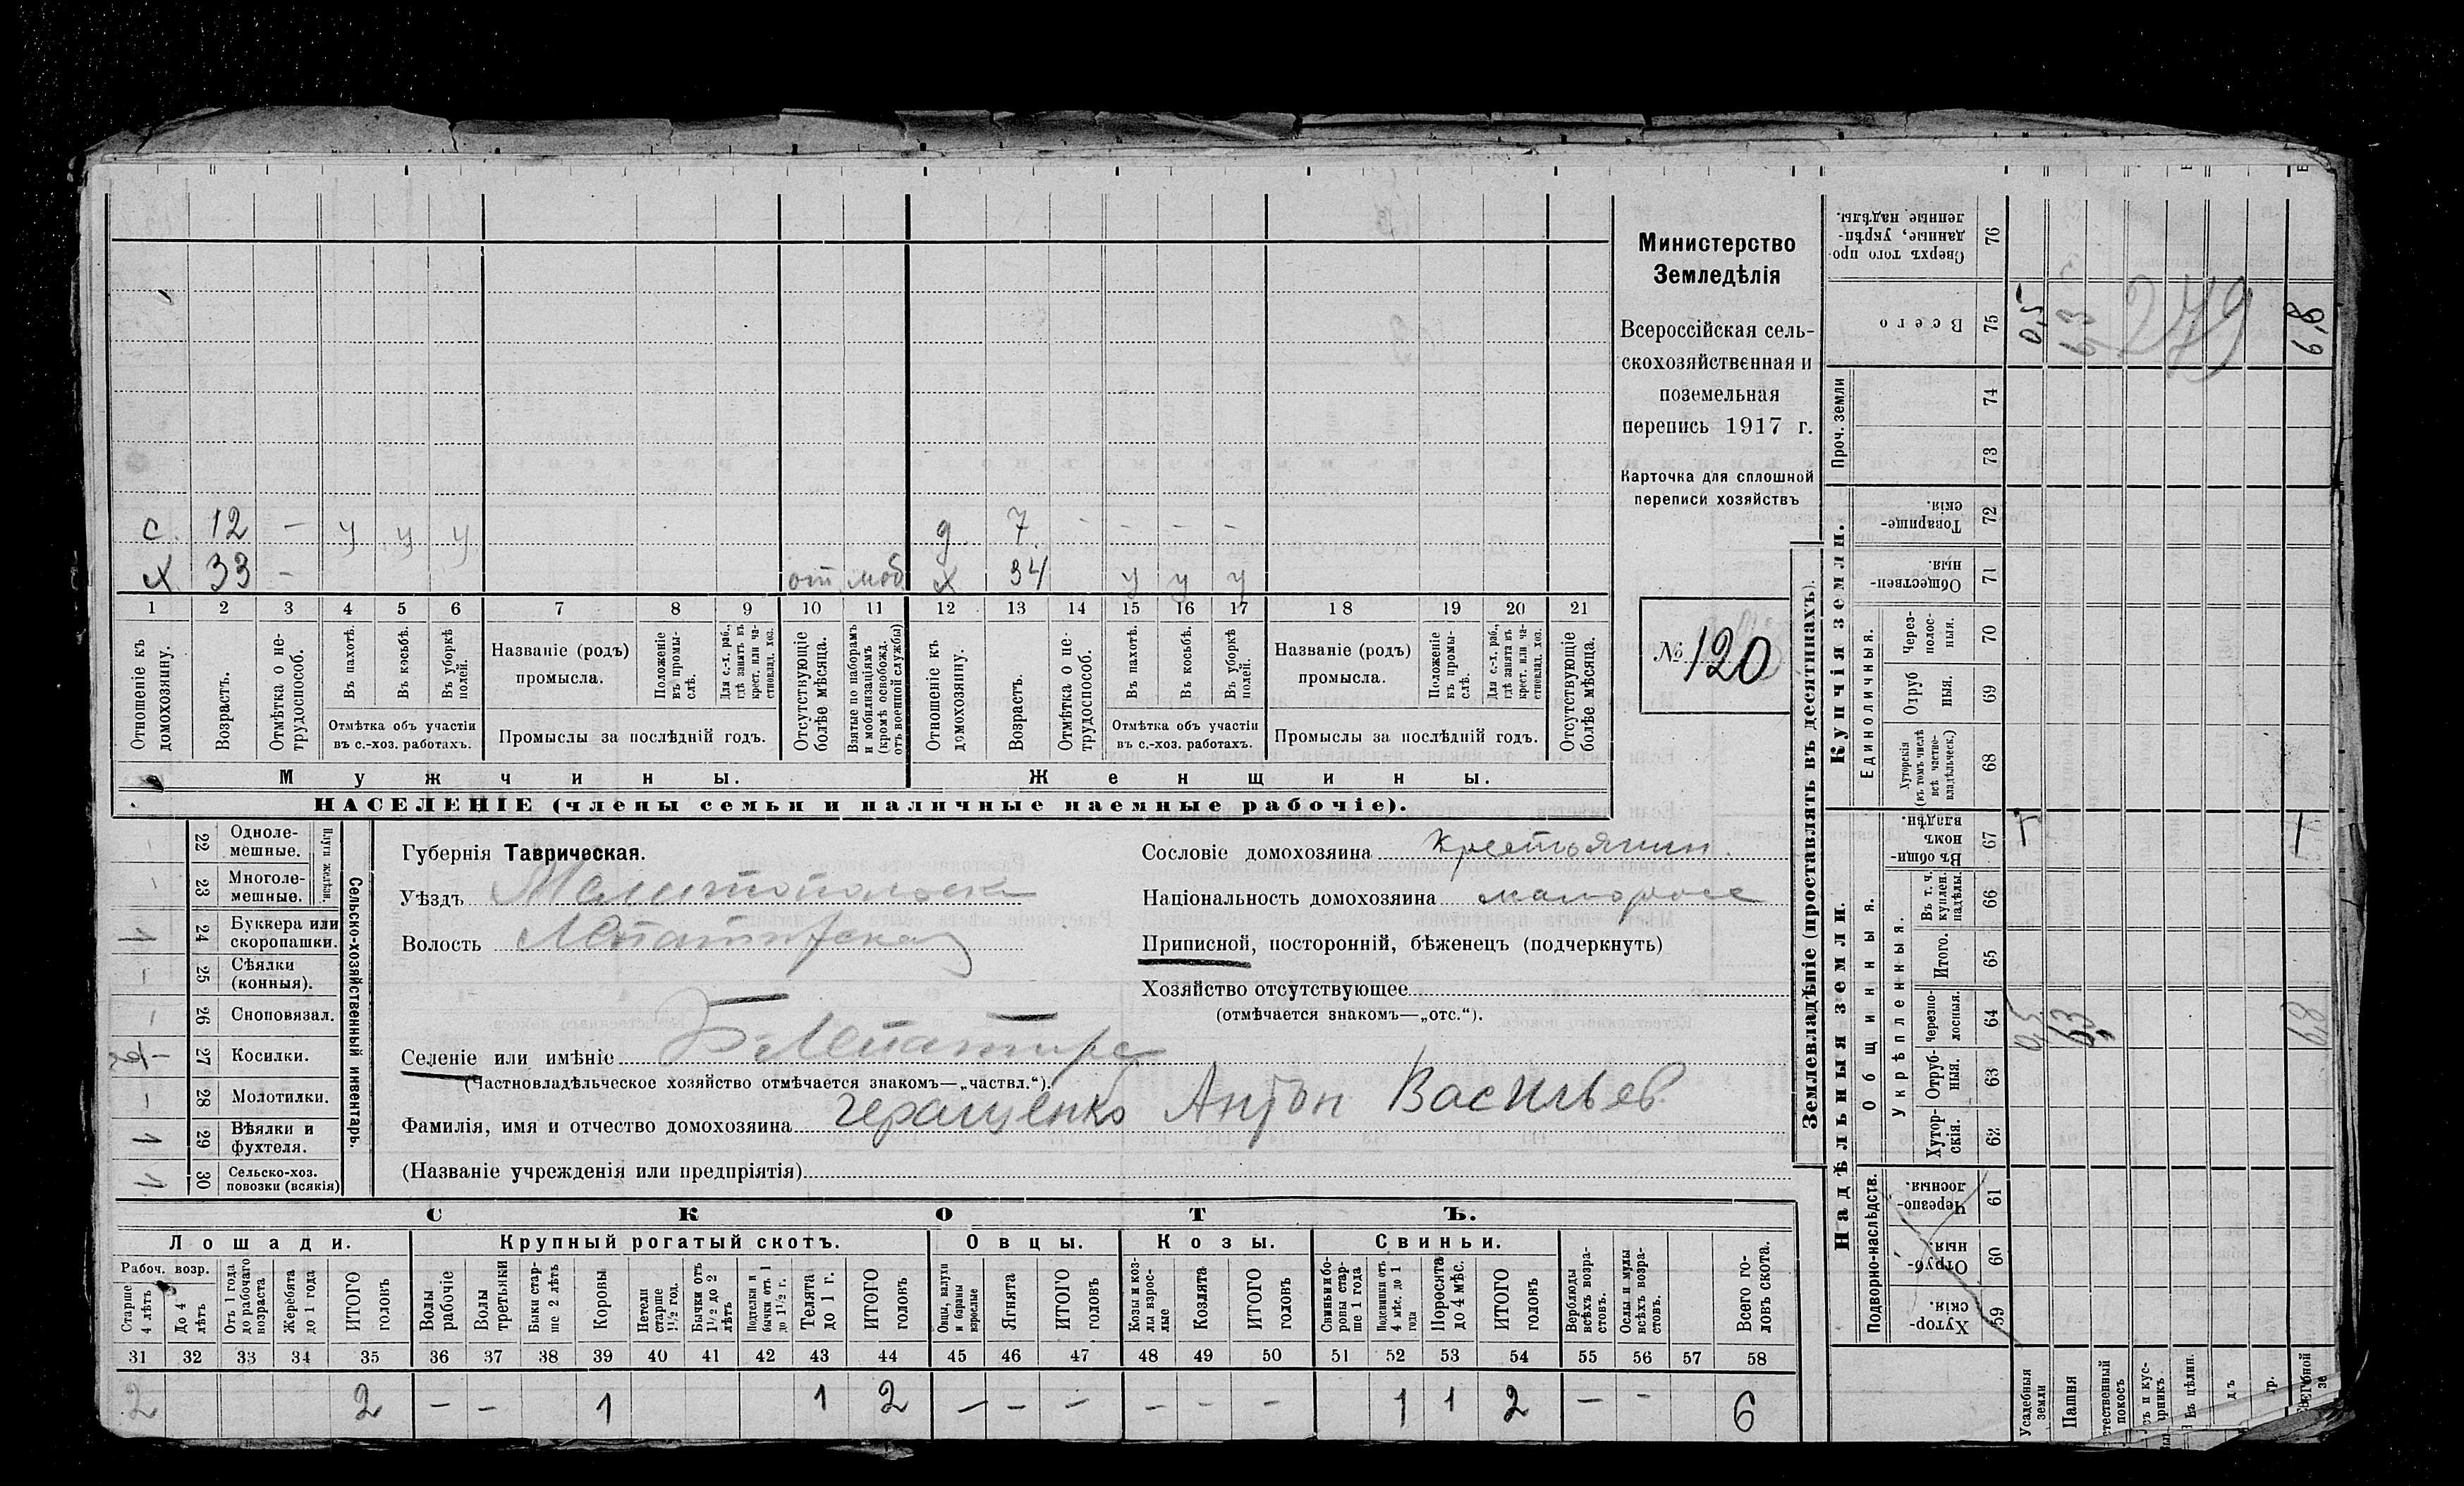 с. 12 — у у у
д. 7 - - - -
х 33 - от. моб
х 34 у у у
1 2 3 4 5 6 7 8 9 10 11 12 13 14 15 16 17 18 19 20 21
Отношеніе къ домохозяину.
Возрастъ.
Отмѣтка о нетрудоспособ.
Въ пахотѣ.
Въ косьбѣ.
Въ уборкѣ полей.
Отмѣтка объ участіи
въ с.-хоз. работахъ.
Названіе (родъ)
промысла.
Положеніе въ промыслѣ.
Для с.-х. раб., гдѣ занятъ въ крест. или частновлад. хоз.
Промыслы за послѣдній годъ.
Отсутствующіе болѣе мѣсяца.
Взятые по наборамъ и мобилизаціямъ (кромѣ освобожд. отъ военной службы)
Отношеніе къ домохозяину.
Возрастъ.
Отмѣтка о нетрудоспособ.
Въ пахотѣ.
Въ косьбѣ.
Въ уборкѣ полей.
Отмѣтка объ участіи
въ с.-хоз. работахъ.
Названіе (родъ)
промысла.
Положеніе въ промыслѣ.
Для с.-х. раб., гдѣ занята въ крест. или частновлад. хоз.
Промыслы за послѣдній годъ.
Отсутствующіе болѣе мѣсяца.
Мужчины. Женщины.
НАСЕЛЕНІЕ (члены семьи и наличные наемные рабочіе).
Министерство
Земледѣлія
Всероссійская сель-
скохозяйственная и
поземельная
перепись 1917 г.
Карточка для сплошной
переписи хозяйствъ
№ 120
Сельско-хозяйственный инвентарь.
Плуги желѣзн.
22 Одноле-
мешные.
23 Многоле-
мешные.
24 Буккера или
скоропашки. 1
25 Сѣялки
(конныя).
26 Сноповязал.
27 Косилки.
28 Молотилки.
29 Вѣялки и
фухтеля. 1
30 Сельско-хоз.
повозки (всякія) 1
Губернія Таврическая.
Уѣздъ Мелитопольск
Волость
Селеніе или имѣніе
(Частновладѣльческое хозяйство отмѣчается знакомъ—„частвл.“).
Фамилія, имя и отчество домохозяина Геращенко Антон Васильев.
(Названіе учрежденія или предпріятія)
Сословіе домохозяина крестьянин.
Національность домохозяина малоросс
Приписной, посторонній, бѣженецъ (подчеркнуть)
Хозяйство отсутствующее
(отмѣчается знакомъ—„отс.“).
СКОТЪ.
Лошади. Крупный рогатый скотъ. Овцы. Козы. Свиньи.
Рабоч. возр.
Старше 4 лѣтъ
До 4 лѣтъ
Отъ 1 года до рабочаго возраста
Жеребята до 1 года
ИТОГО головъ
Волы рабочіе
Волы третьячки
Быки старше 2 лѣтъ
Коровы
Нетели старше 1½ год.
Бычки отъ 1½ до 2 лѣтъ
Подтелки и бычки отъ 1 до 1½ г.
Телята до 1 г.
ИТОГО головъ
Овцы, валухи и бараны взрослые
Ягнята
ИТОГО головъ
Козы и козлы взрослые
Козлята
ИТОГО головъ
Свиньи и боровы старше 1 года
Подсвинки отъ 4 мѣс. до 1 года
Поросята до 4 мѣс.
ИТОГО головъ
Верблюды всѣхъ возрастовъ.
Ослы и мулы всѣхъ возрастовъ.
Всего головъ скота.
31 32 33 34 35 36 37 38 39 40 41 42 43 44 45 46 47 48 49 50 51 52 53 54 55 56 57 58
2 2 — — 1 1 2 — — — — — — 1 1 2 — - 6
Землевладѣніе (проставлять въ десятинахъ).
Купчія земли.
Надѣльныя земли.
Проч. земли
Единоличныя.
Общинныя.
Укрѣпленныя.
Подворно-наслѣдств.
Сверхъ того проданные, укрѣпленные надѣлы. 76
Всего 75 0,5 6,3 279 6,8
74
73
Товарищескія 72
Общественныя. 71
Черезполосныя. 70
Отрубныя. 69
Хуторскія (въ томъ числѣ всѣ частновладѣльческ.) 68
Въ общинномъ владѣн. 67
Въ т. ч. куплен. надѣлы. 66
Итого. 65
черезполосныя. 64 0,5 6,3 6,8
Отрубныя. 63
Хуторскія. 62
Черезполосныя 61
Отрубныя. 60
Хуторскія. 59
Усадебныя земли
Пашня